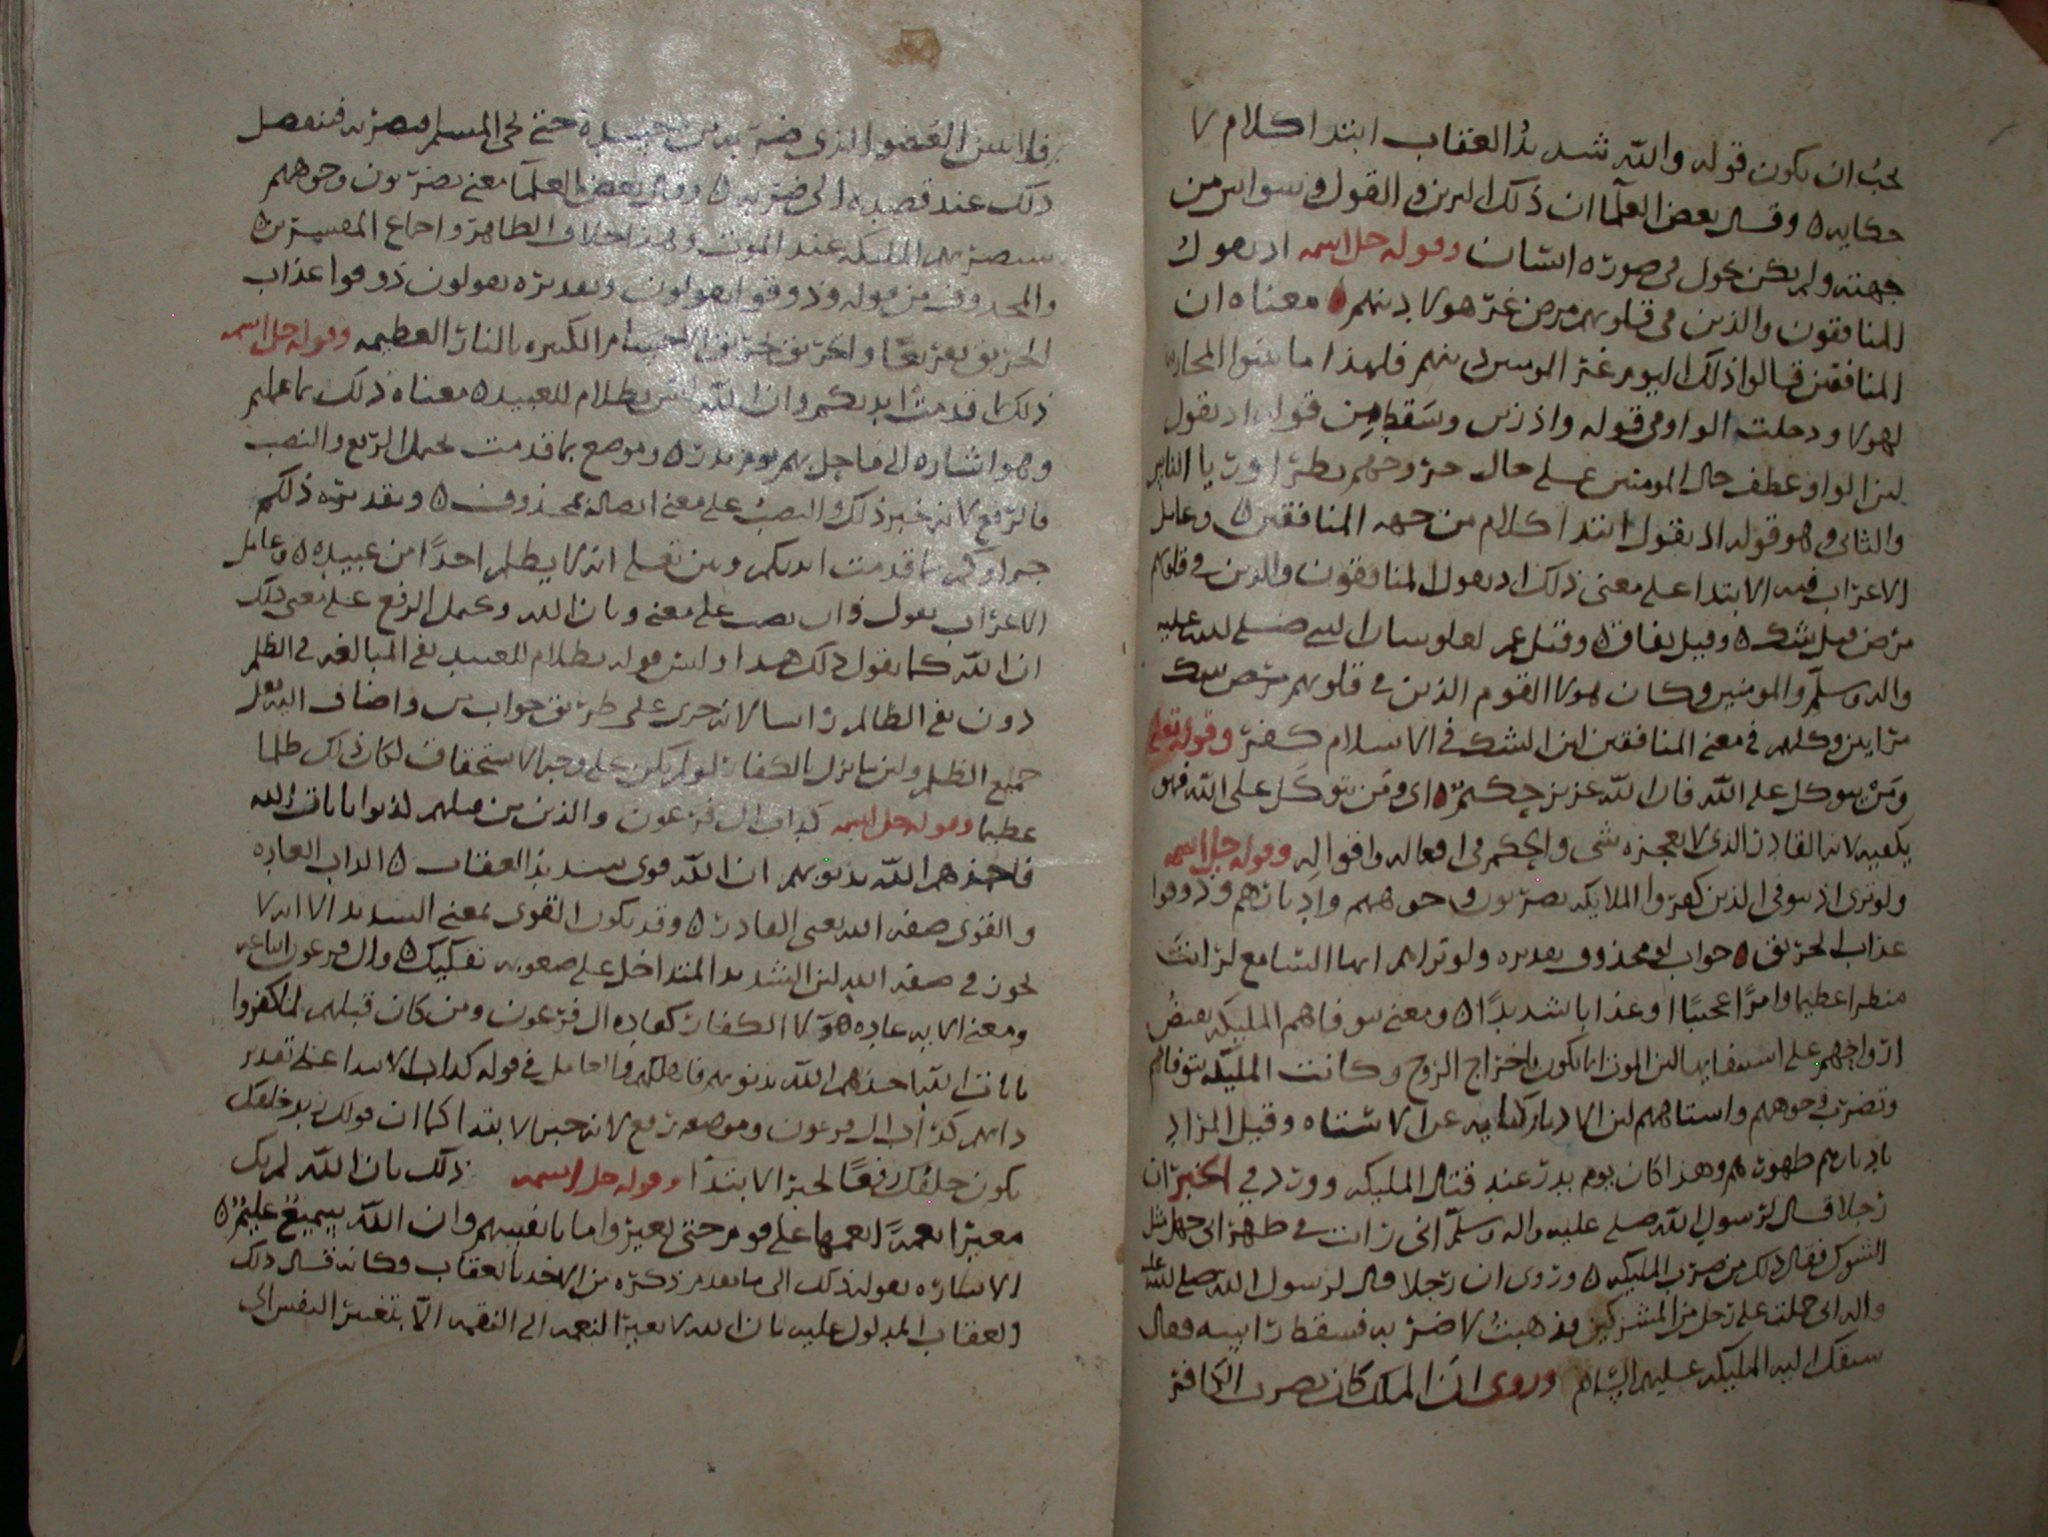 يجب ان يكون قوله والله شديد العقاب ابتدا كلام لا
حكايه ه وقال بعض العلما ان ذلك ابليس في القول وسواس من
جهته ولم يكن يحول في صورة انسان وقوله جل اسمه اذ يقول
المنافقون والذين في قلوبهم مرض غر هولا دينهم ه معناه ان
المنافقين قالوا ذلك اليوم غر المومنين دينهم فلهذا ما
لهولا ودخلت الواو في قوله واذ زين وسقط من قوله اذ يقول
لان الواو عطف حال المومنين على حال خروجهم بطرا وريا الناس
والثاني وهو قوله اذ يقول ابتدا كلام من جهه المنافقين ه وعامل
الاعراب فيه الابتدا على معنى ذلك اذ يقول المنافقون والذين في قلوبهم
مرض قيل شك ه وقيل نفاق ه وقيل هم صلى الله عليه
واله وسلم والمومنين وكان هولا القوم الذين في قلوبهم مرض شك
وكلهم في معنى المنافقين لان الشك في الاسلام كفر وقوله تعالى
ومن يتوكل على الله فان الله عزيز حكيم ه اي ومن يتوكل على الله فهو
يكفيه لانه القادر الذي لا يعجزه شي والحكيم في افعاله واقواله وقوله جل اسمه
ولو ترى اذ يتوفى الذين كفروا الملايكه يضربون وجوههم وادبارهم وذوقوا
عذاب الحريق ه جواب لو محذوف تقديره ولو تراهم ايها السامع لرايت
منظرا عظيما وامرا عجيبا او عذابا شديدا ه ومعنى يتوفاهم المليكه يقبض
ارواحهم على استيفايها لان الموت انما يكون باخراج الروح وكانت المليكه تتوفاهم
وتضرب وجوههم واستاههم لان الادبار كنايه عن الاستاه وقيل المراد
بادبارهم ظهورهم وهذا كان يوم بدر عند قتال المليكه وورد في الخبر ان
رجلا قال لرسول الله صلى عليه واله وسلم اني رايت في ظهر ابي جهل مثل
الشوك فقال ذلك من ضرب المليكه ه وروي ان رجلا قال لرسول الله صلى الله عليه
واله اني حملت على رجل من المشركين فذهبت لاضربه فسقط راسه فقال
سبقك اليه المليكه عليهم السلام وروى ان الملك كان يضرب الكافر
العضو الذي حتى يجي المسلم فيضربه فينفصل
ذلك عند قصده الى ضربه ه وقال بعض العلما معنى يضربون وجوههم
ستضربهم المليكه عند الموت وهذا خلاف الظاهر واجماع المفسرين ه
والمحذوف من قوله وذوقوا يقولون وتقديره يقولون ذوقوا عذاب
الحريق تقريعا والحريق تحريق الاجسام الكبيره بالنار العظيمه وقوله جل اسمه
ذلك بما قدمت ايديكم وان الله ليس بظلام للعبيد ه معناه ذلك بما عملتم
وهو اشاره الى ما حل بهم يوم بدر ه وموضع بما قدمت يحمل الرفع والنصب
فالرفع لانه خبر ذلك والنصب على معنى اتصاله بمحذوف ه وتقديره ذلكم
جزاوكم بما قدمت ايديكم وبين تعلى انه لا يظلم احدا من عبيده ه وعامل
الاعراب يقول وان نصب على معنى وبان الله ويحمل الرفع على معنى ذلك
ان الله كما يقول ذلك هذا وليس قوله بظلام للعبيد نفي المبالغه في الظلم
دون نفي الظالم راسا لانه جرى على طريق جواب من اضاف اليه فعل
جميع الظلم ولان ما نزل بالكفار لو لم يكن على وجه الاستحقاق لكان ذلك ظلما
عظيما وقوله جل اسمه كداب ال فرعون والذين من قبلهم كذبوا بايات الله
فاخذهم الله بذنوبهم ان الله قوي شديد العقاب ه الداب العاده
والقوى صفه الله يعني القادر ه وقد يكون القوى بمعنى الشديد الا انه لا
يجوز في صفه الله لان الشديد المتداخل على صعوبه تفكيك ه وال فرعون اتباعه
ومعنى الايه عاده هولا الكفار كعاده ال فرعون ومن كان قبلهم لما كفروا
بايات الله اخذهم الله بذنوبهم فاهلكهم والعامل في قوله كداب الابتدا على تقدير
دابهم كداب ال فرعون وموضعه رفع لانه خبر الابتدا كما ان قولك زيد خلفك
يكون خلفك رفعا لخبر الابتدا وقوله جل اسمه ذلك بان الله لم يك
مغيرا نعمة انعمها على قوم حتى يغيروا ما بانفسهم وان الله سميع عليم ه
الاشاره بقوله ذلك الى ما تقدم ذكره من الاخذ بالعقاب وكانه قال ذلك
العقاب المدلول عليه بان الله لا يغير النعمه الى النقمه الا بتغيير النفس الى